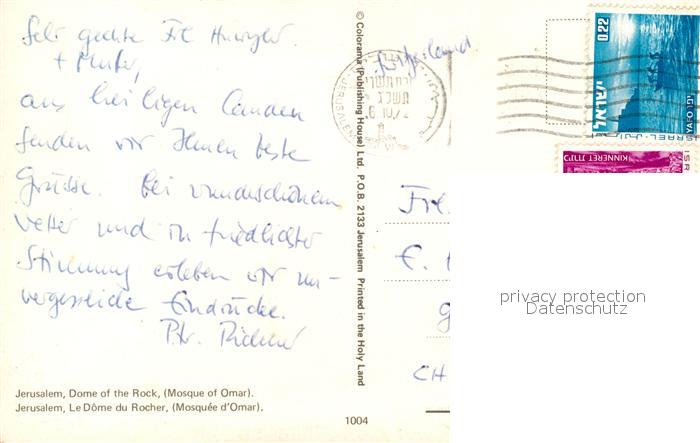 Sehr geehrte Frl.
+ Mutter,
aus heiligen Landen
senden wir Ihnen beste
Grüsse. Bei wunderschönem
Wetter und in friedlichster
Stimmung erleben wir un-
vergessliche Eindrücke.
© Colorama (Publishing House) Ltd. P.O.B. 2133 Jerusalem Printed in the Holy Land
Switzerland
JERUSALEM
תשל"ג
0.22
ישראל
ISRAEL
YAFO
KINNERET
Frl.
E.
CH
privacy protection
Datenschutz
Jerusalem, Dome of the Rock, (Mosque of Omar).
Jerusalem, Le Dôme du Rocher, (Mosquée d'Omar).
1004